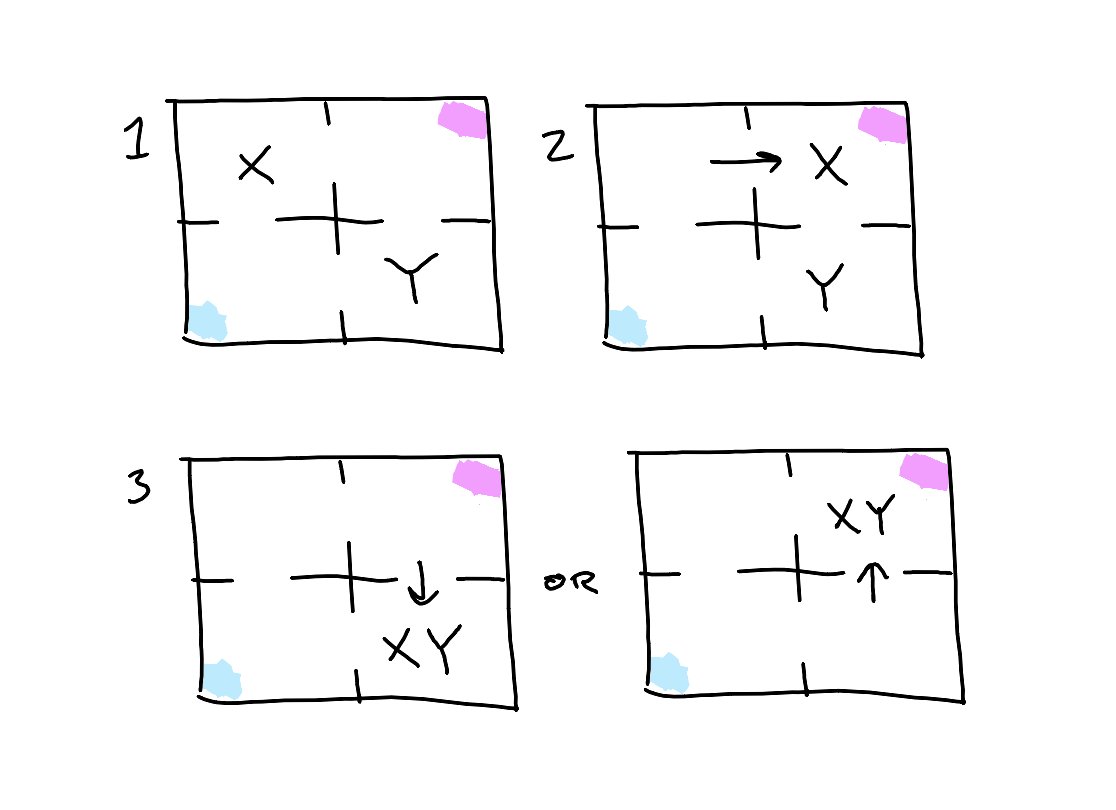 1
X
Y
2
X
Y
3
XY
OR
XY